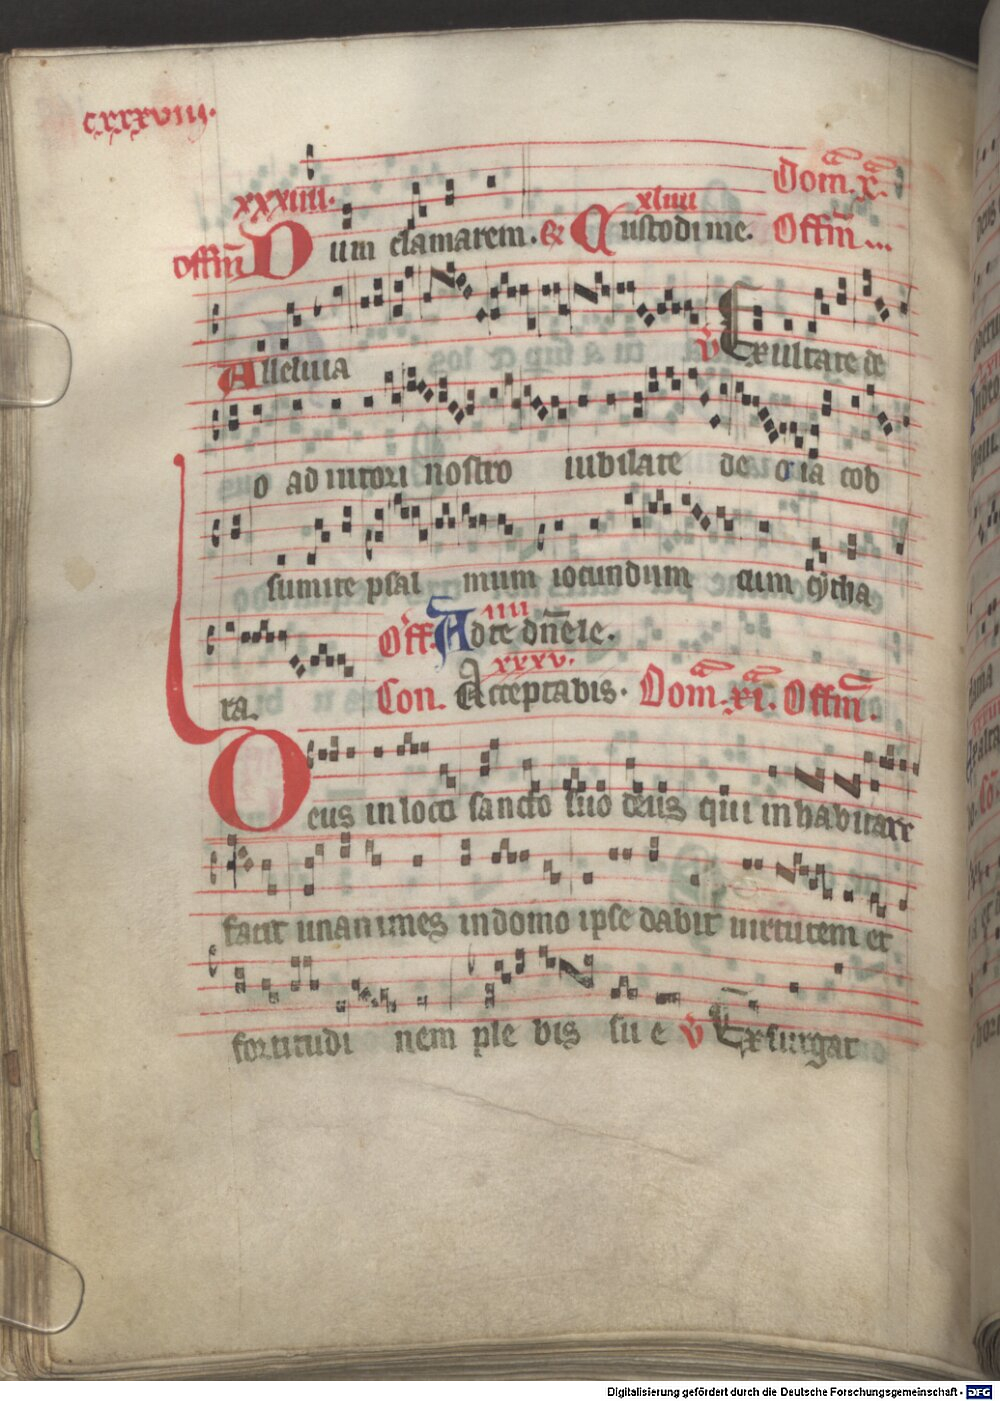 cxxxviii.
Dom̅. x̅.
xxxiiii. xliiii
offm̅ Dum clamarem. & Custodi me. Offm̅...
Alleluia ℣ Exultate de
o ad iutori nostro iubilate deo ia cob
sumite psal mum iocundum cum cytha
iiii
ra. Off. Ad te dn̅e le.
xxxv.
Con. Acceptabis. Dom̅. xi̅. Offm̅.
Deus in loco sancto suo deus qui inhabitare
facit unanimes in domo ipse dabit uirtutem et
fortitudi nem ple bis su e ℣ Exsurgat
Digitalisierung gefördert durch die Deutsche Forschungsgemeinschaft - DFG